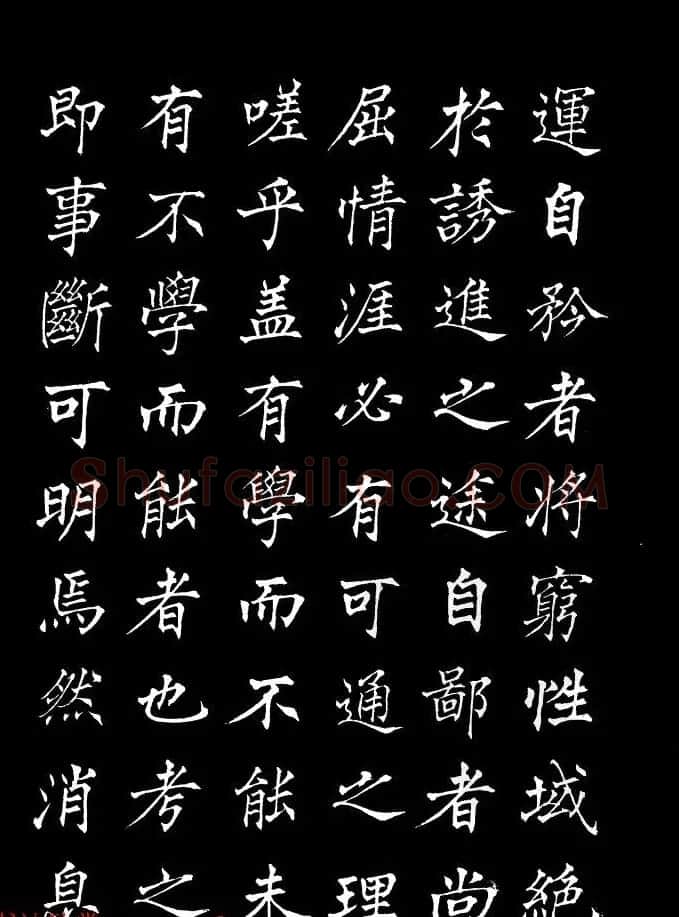 運自矜者將窮性域絶
於誘進之途自鄙者尚
屈情涯必有可通之理
嗟乎盖有學而不能未
有不學而能者也考之
即事斷可明焉然消息
Shufaziliao.COM